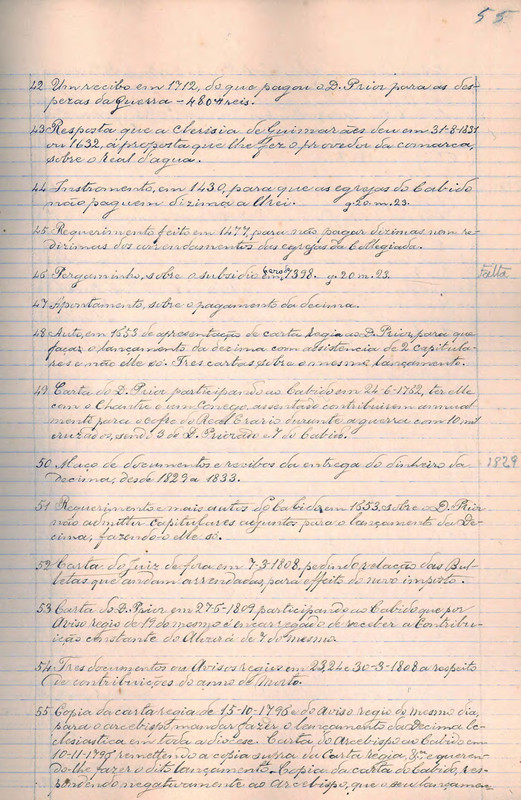 55
42 Um recibo em 1712, do que pagou o D. Prior para as des-
pezas da guerra - 4804 reis.
43 Resposta que a cleresia de Guimarães deu em 31-8-1631
ou 1632, á proposta que lhe fez o provedor da comarca,
sobre o real d'agua.
44 Instromento, em 1430, para que as egrejas do Cabido
não paguem dizima a elrei. g. 20. m. 23.
45 Requerimento feito em 1477, para não pagar dizimas nem re-
dizimas dos arrendamentos das egrejas da Collegiada.
46 Pergaminho, sobre o subsidio em 1398. g. 20 m. 23. Falta
47 Apontamento, sobre o pagamento da decima.
48 Auto, em 1653 de apresentação de carta regia ao D. Prior, para que
faça o lançamento da decima com assistencia de 2 capitula-
res e não elle só. Tres cartas sobre o mesmo lançamento.
49 Carta do D. Prior participando ao Cabido em 24-6-1762, ter elle
com o Chantre e um Conego, assentado contribuirem annual-
mente para o cofre do Real Erario durante a guerra com 10 mil
cruzados, send. 3 do D. Priorado e 7 do Cabido.
50 Maço de documentos e recibos da entrega do dinheiro da 1829
decima, desde 1829 a 1833.
51 Requerimento e mais autos do Cabido, em 1653, sobre o D. Prior
não admittir capitulares adjuntos para o lançamento da De-
cima, fazendo-o elle só.
52 Carta do Juiz de fora em 7-3-1808, pedindo relação das Bul-
letas que andam arrendadas, para effeito do novo imposto.
53 Carta do D. Prior em 27-5-1809 participando ao Cabido que por
Aviso regio de 19 do mesmo é encarregado de receber a Contribu-
ição constante do Alvará de 7 do mesmo.
54 Tres documentos ou Avisos regios em 23, 24 e 30-3-1808 a respeito
de contribuições do anno de
55 Copia da carta regia de 15-10-1796 e do Aviso regio do mesmo dia,
para o arcebispo mandar fazer o lançamento da Decima Ec-
clesiastica em toda a diocese. Carta do Arcebispo ao Cabido em
10-11-1796 remettendo a copia supra da Carta regia, e queren-
do-lhe fazer o dito lançamento. Copia da carta do Cabido, res-
pondendo negativamente ao Arcebispo, que o seu lançamen-